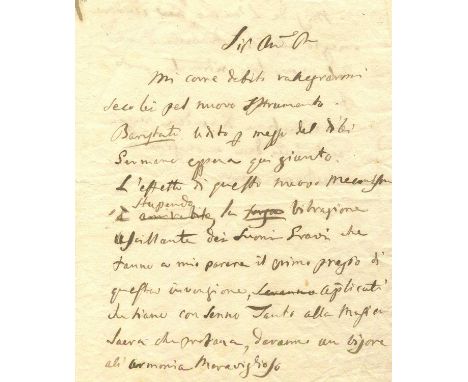 Sigr Amo
Mi corre debito rallegrarmi
seco lei pel nuovo Istrumento.
Baristati udito p mezzo del dibi
Germano appena qui giunto.
L'effetto di questo nuovo
Stupendo
è la forza vibrazione
oscillante dei Suoni Gravi che
fanno a mio parere il primo pregio di
questa invenzione, Saranno applicati
tanto alla Musica
Sacra che profana, daranno un vigore
all'armonia Maraviglioso